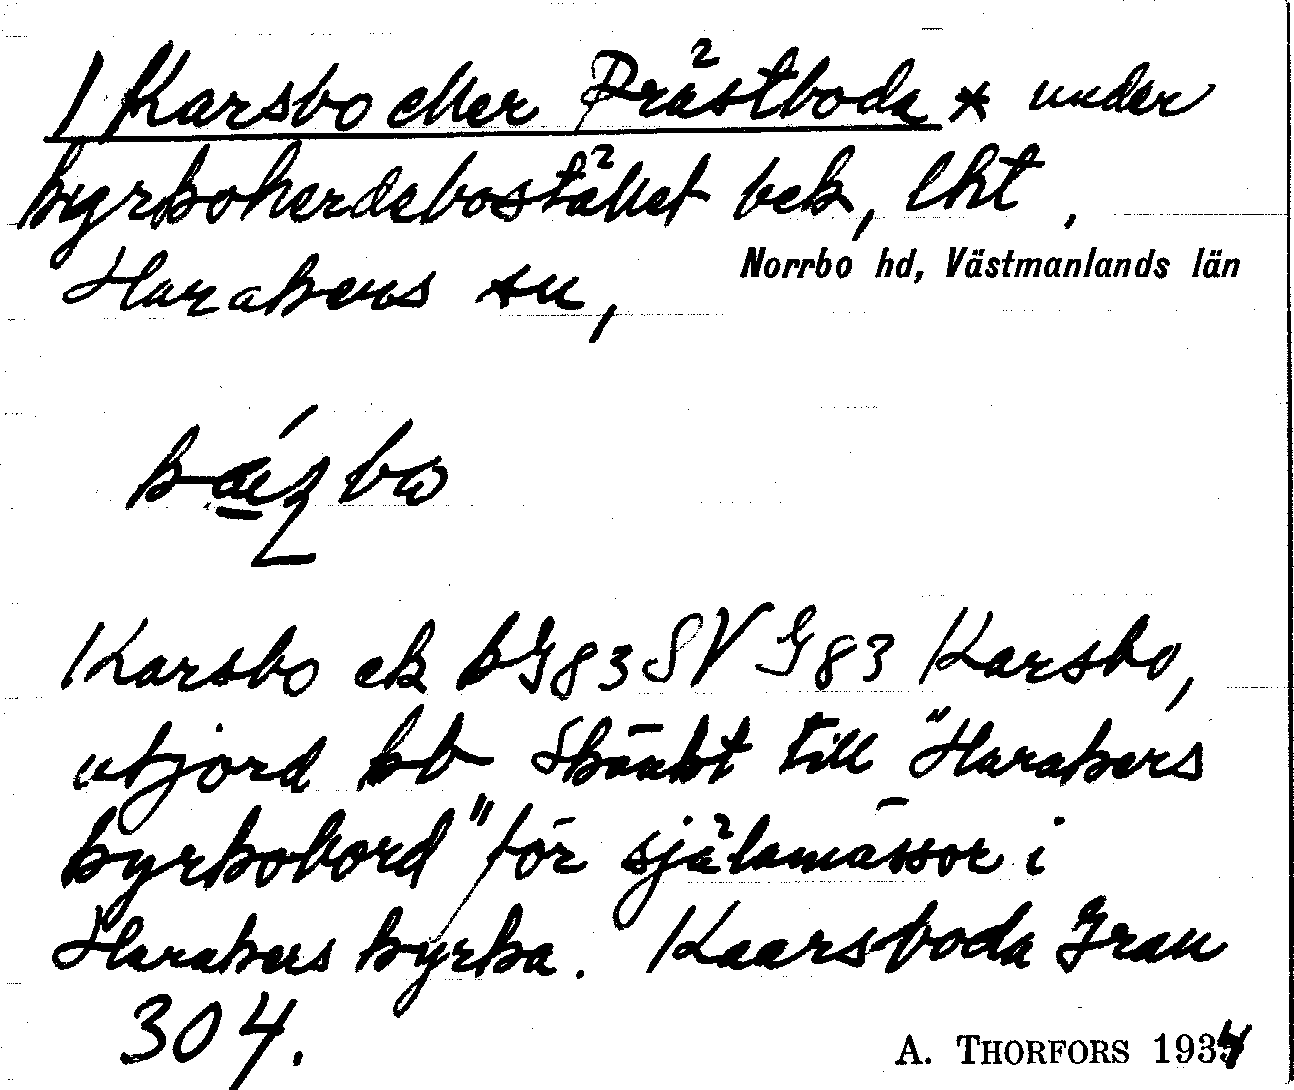 Karsbo eller Prästboda * under
kyrkoherdebostället bek, lht,
Harakers sn,
Norrbo hd, Västmanlands län
Karsbo ek BG83 SV G83 Karsbo,
utjord kb Skänkt till "Harakers
kyrkobord" för själamässor i
Harakers kyrka. Kaarsboda Gran
304.
A. THORFORS 1934